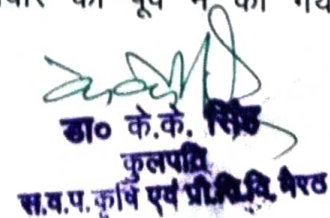 को पूर्व में की
डा० के.के. सिंह
कुलपति
स.व.प. कृषि एवं प्रौ.वि.वि. मेरठ